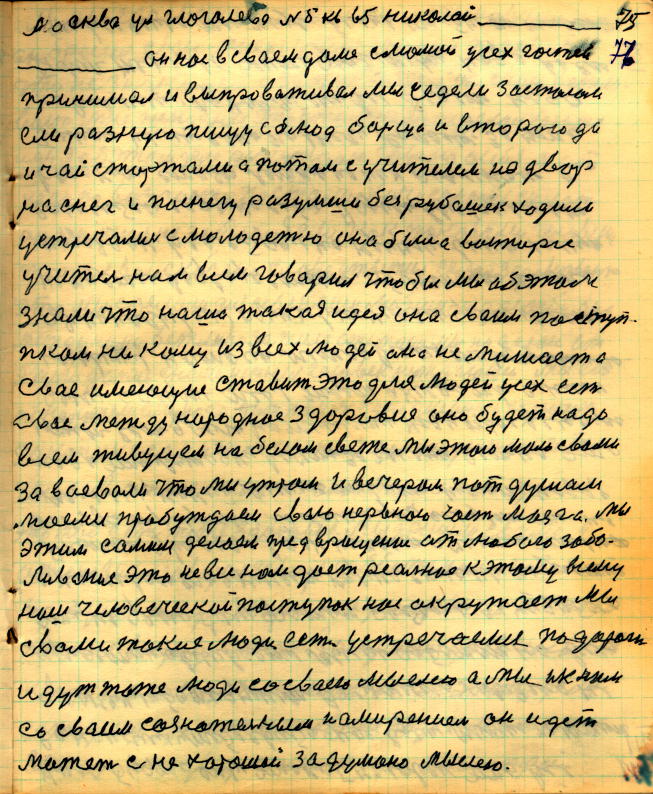 Москва ул глоголево №5 кв 65 николай 75
он нос всваем доме смомой усех гостей 77
принимал и выпроваживал мы седели Застолом
ели разную пищу сблюд борща и второго да
и чай стортами а потом сучителем на двор
наснег и поснегу разумши безрубашек ходили
устречались смолодежю она была восторге
учител нам всем говарил чтобы мы обэтом
знали что наша такая идея она сваим поступ-
пком никому из всех людей она не мишает а
свае имеющие ставит это для людей усех ест
свае международное здоровие оно будет надо
всем живущем на белом свете мы этого молсвами
завоевали что мы утром и вечером под душам
моеми пробуждаем сваю нервною част мозга. мы
этим самим делаем предвращение от любого забо-
ливание это не виномдает реалное к этому всему
наш человеческой поступок нас окружает мы
свами такие люди ест устречаемы подороги
идут тоже люди со сваею мыслею а мы ик ним
со сваим сознательным намирением он идет
может с не хорошой задумано мыслею.